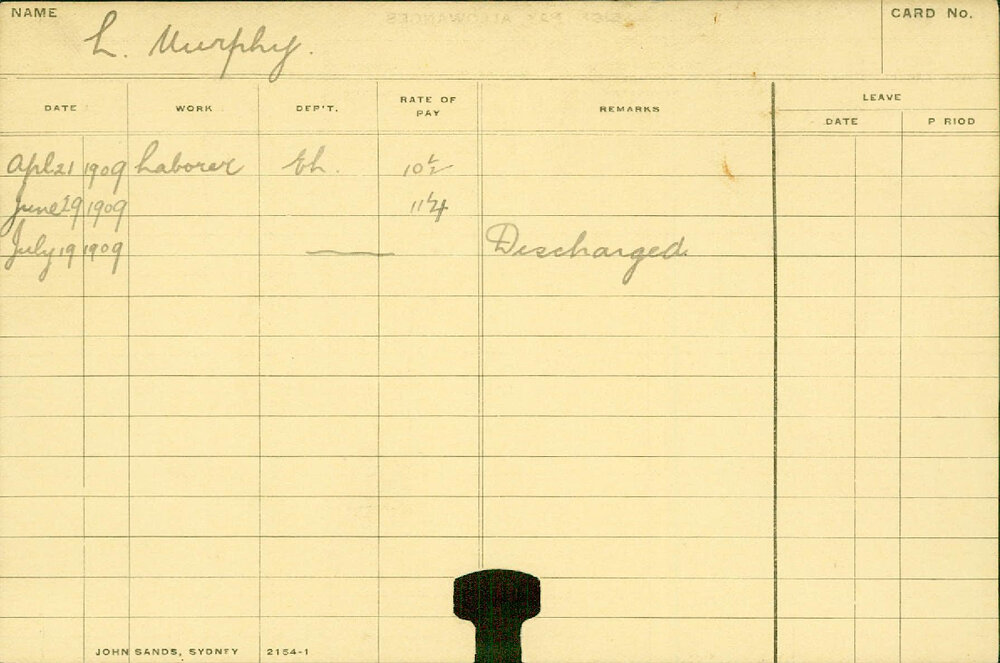 NAME
L. Murphy.
CARD No.
DATE WORK DEP'T. RATE OF PAY REMARKS LEAVE
DATE P RIOD
Apl 21 1909 Laborer Eh. 10½
June 29 1909 11¼
July 19 1909 — Discharged.
JOHN SANDS, SYDNEY 2154-1